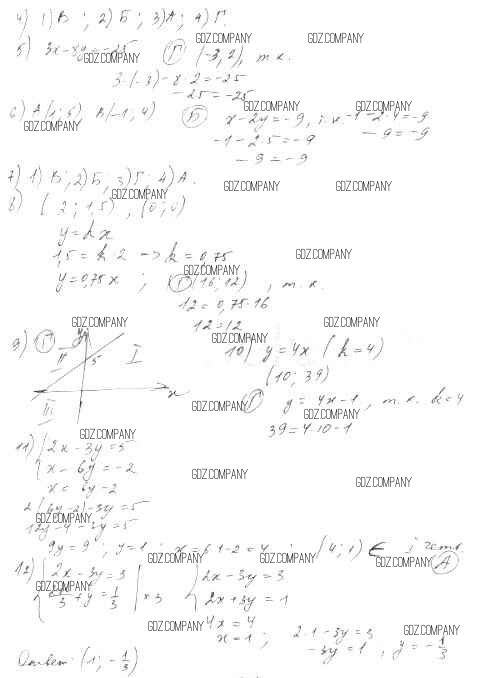 4) 1) В; 2) Б; 3) А; 4) Г.
GDZ.COMPANY GDZ.COMPANY
5) 3x - 8y = -25 Г (-3; 2), т.к.
GDZ.COMPANY
3·(-3) - 8·2 = -25
-25 = -25
GDZ.COMPANY GDZ.COMPANY
6) A(1; 5) B(-1; 4) Б x - 2y = -9, т.к. -1 - 2·4 = -9
GDZ.COMPANY
-1 - 2·5 = -9 -9 = -9
-9 = -9
7) 1) В; 2) Б; 3) Г; 4) А.
GDZ.COMPANY GDZ.COMPANY GDZ.COMPANY
8) (2; 1,5), (0; 0)
y = kx
1,5 = k·2 -> k = 0,75
GDZ.COMPANY GDZ.COMPANY
y = 0,75x; Г (16; 12), т.к.
12 = 0,75·16
12 = 12
GDZ.COMPANY GDZ.COMPANY
9) Г y
II 5 I
III x
GDZ.COMPANY
10) y = 4x (k = 4)
(10; 39)
GDZ.COMPANY Г y = 4x - 1, т.к. k = 4
GDZ.COMPANY
39 = 4·10 - 1
GDZ.COMPANY
11) 2x - 3y = 5
x - 6y = -2
GDZ.COMPANY GDZ.COMPANY
x = 6y - 2
2(6y - 2) - 3y = 5
GDZ.COMPANY
12y - 4 - 3y = 5
9y = 9; y = 1; x = 6·1 - 2 = 4; (4; 1) ∈ I четв.
GDZ.COMPANY GDZ.COMPANY GDZ.COMPANY А
12) 2x - 3y = 3 2x - 3y = 3
GDZ.COMPANY
+ y = 1/3 | ×3 2x + 3y = 1
GDZ.COMPANY GDZ.COMPANY
4x = 4
x = 1; 2·1 - 3y = 3
-3y = 1, y = -1/3
Ответ: (1; -1/3)